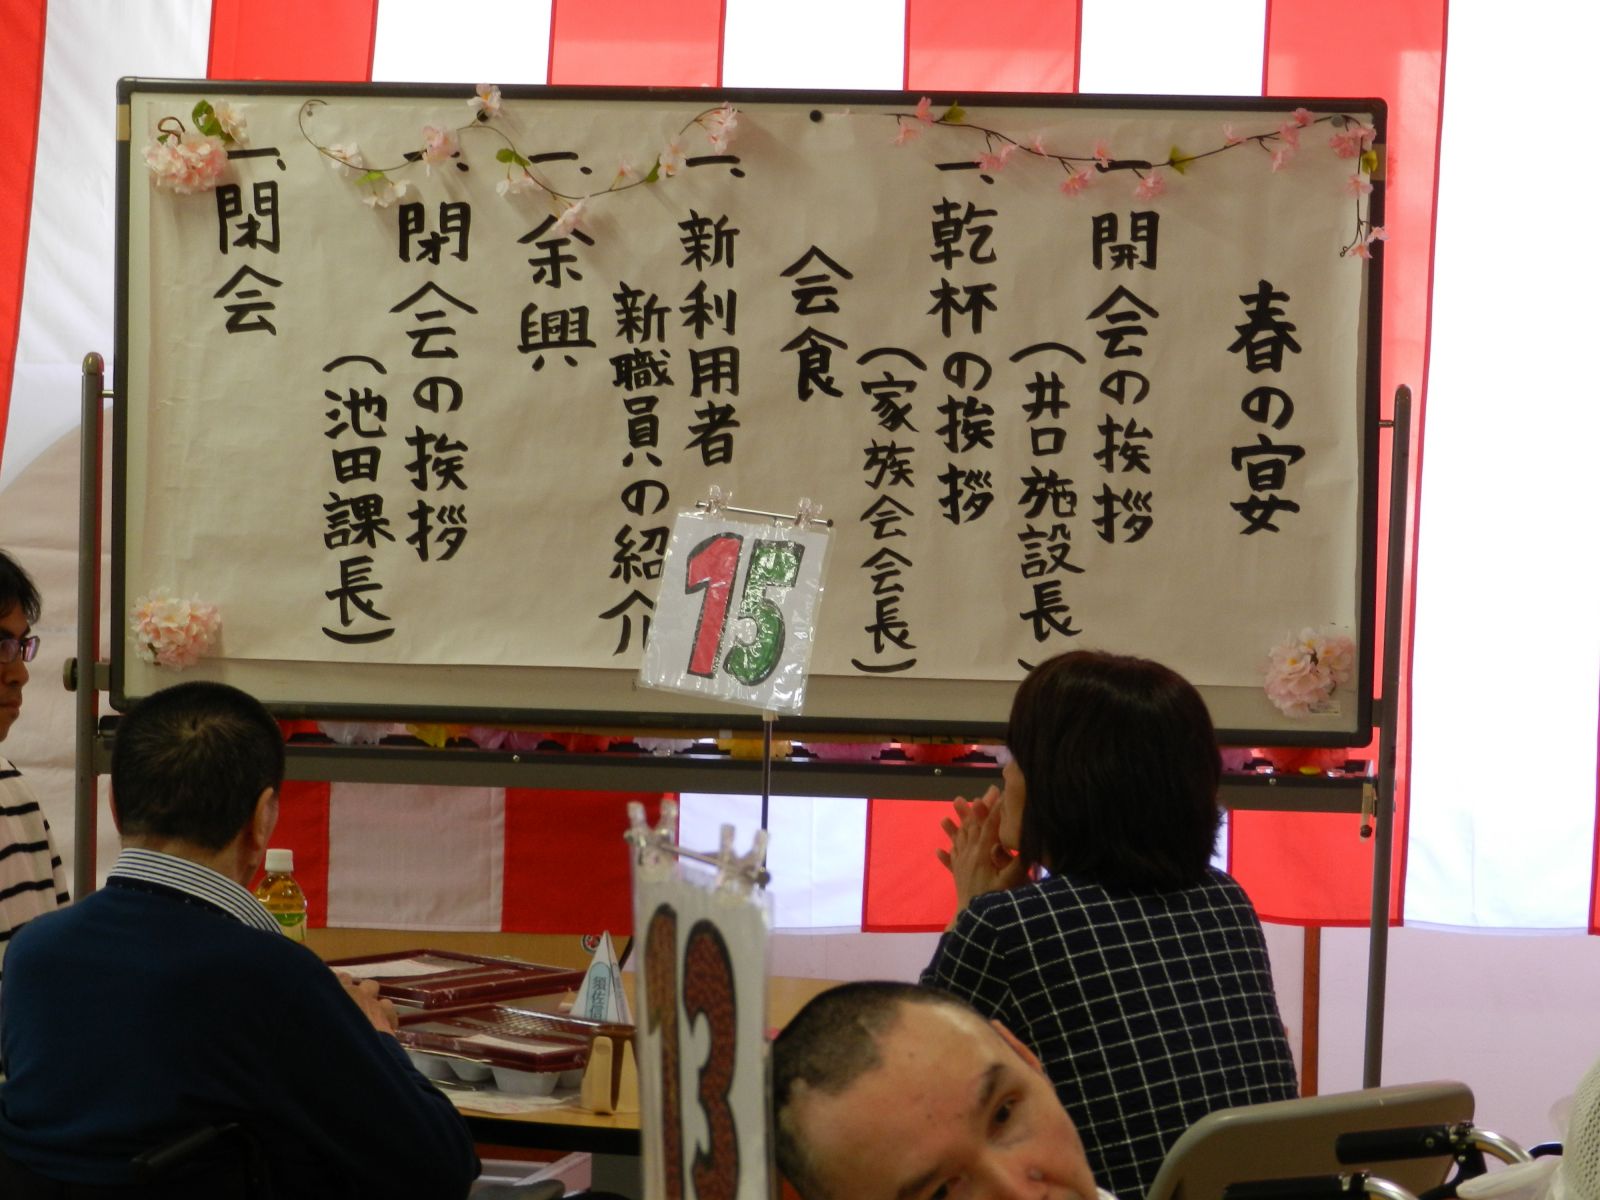 春の宴
一、開会の挨拶
（井口施設長）
一、乾杯の挨拶
（家族会会長）
会食
一、新利用者
新職員の紹介
一、余興
一、閉会の挨拶
（池田課長）
一、閉会
15
13
須佐信